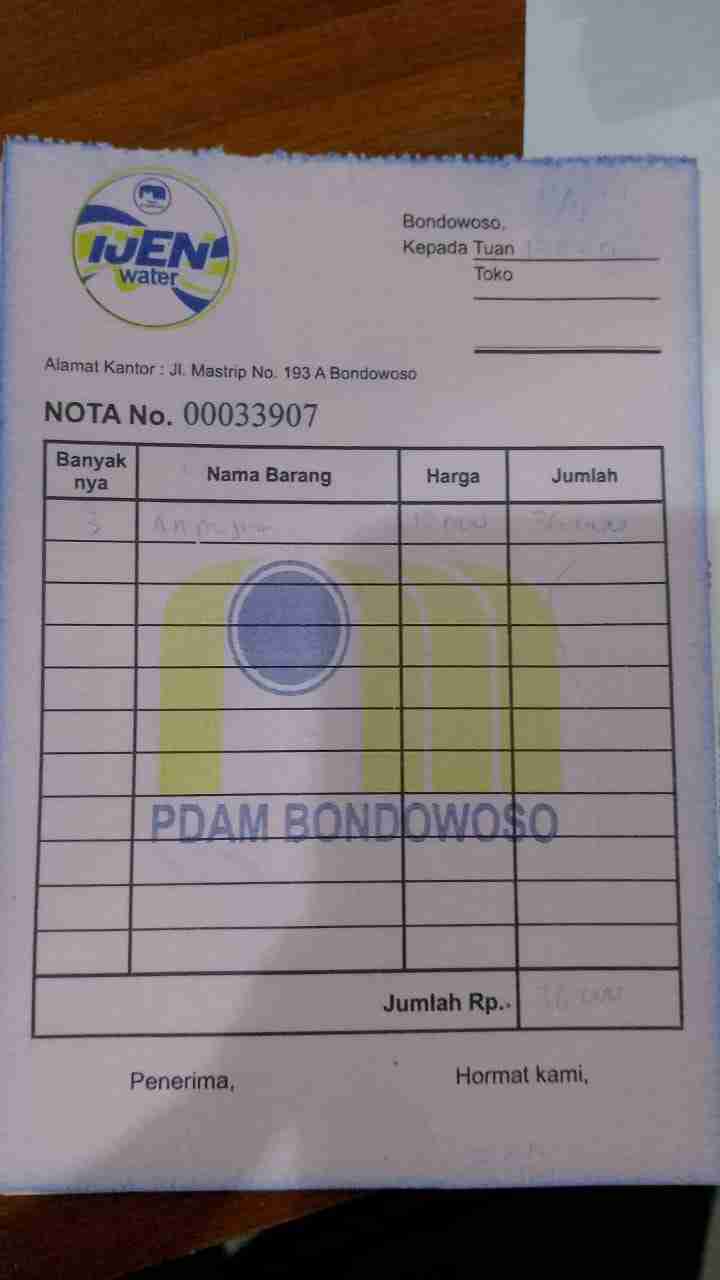 IJEN
water
Bondowoso,
Kepada Tuan
Toko
Alamat Kantor : Jl. Mastrip No. 193 A Bondowoso
NOTA No. 00033907
Banyak nya Nama Barang Harga Jumlah
3 12 000 36 000
PDAM BONDOWOSO
Jumlah Rp. 36 000
Penerima, Hormat kami,